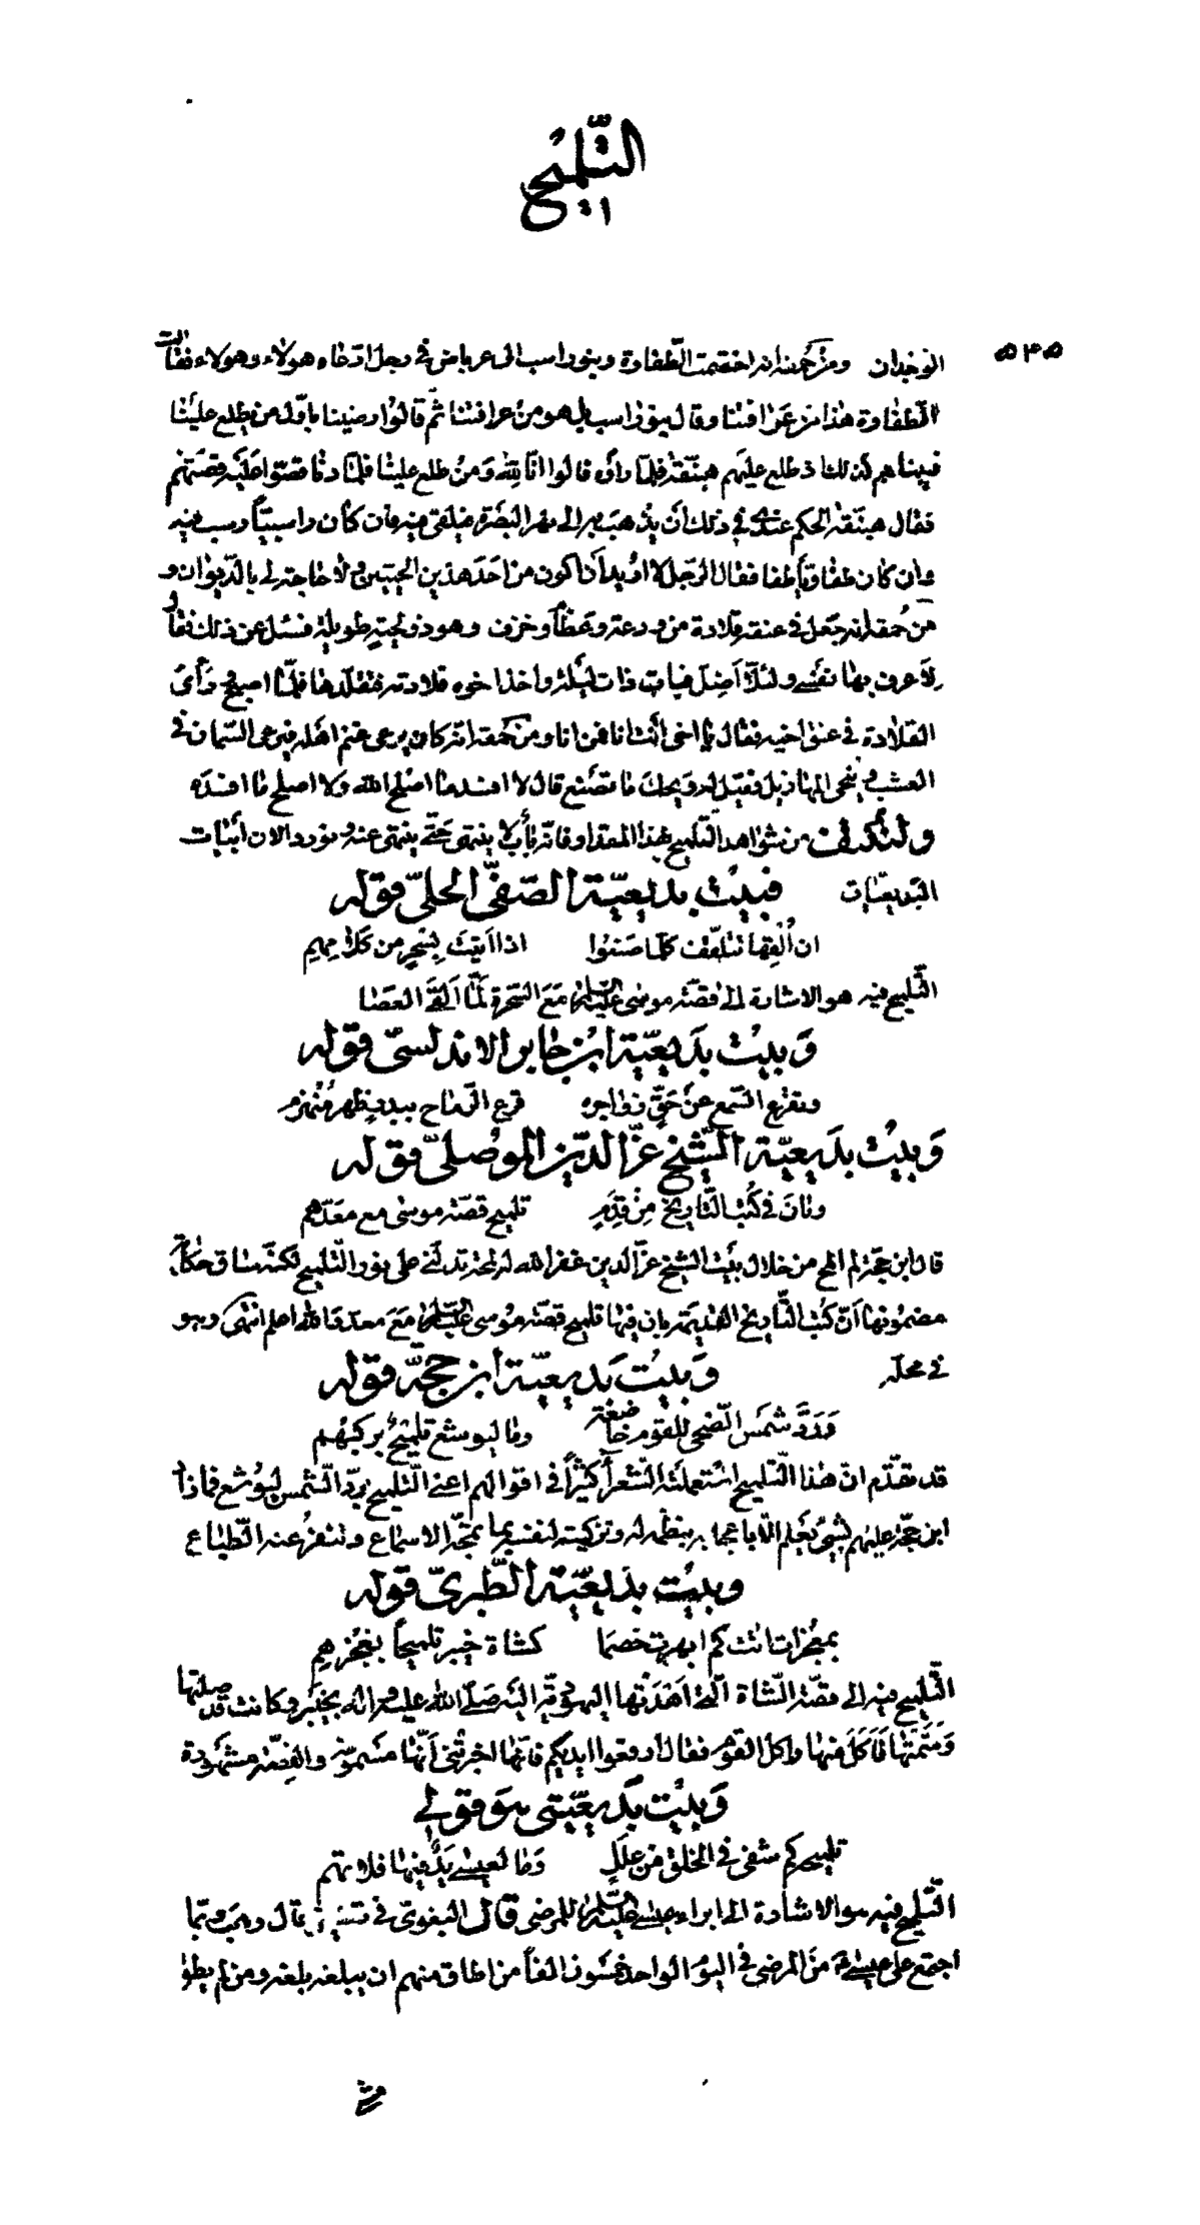 التلميح
٥٣٥
الوخدان ومن حمقه انه اختصمت الطفاوة وبنو راسب الى عرباض في رجل ادعاه هولاء وهولاء فقالت
الطفاوة هذا من عرافتنا وقال بنو راسب بل هو من عرافتنا ثم قالوا رضينا باول من يطلع علينا
فبيناهم كذلك اذ طلع عليهم هبنقة فلما رأوه قالوا انا لله ومن طلع علينا فلما دنا قصوا عليه قصتهم
فقال هبنقة الحكم عندى في ذلك أن يذهب به الى نهر البصرة فيلقى فيه فان كان راسبيا رسب فيه
وان كان طفاويا طفا فقال الرجل لا اريد أن اكون من احد هذين الحيين ولا حاجة لي بالديوان و
من حمقه انه جعل في عنقه قلادة من ودعة وعظم وخزف وهو ذو لحية طويلة فسئل عن ذلك فقال
لاعرف بها نفسي ولئلا أضل فبات ذات ليلة واخذ اخوه قلادته فتقلدها فلما اصبح ورأى
القلادة في عنق اخيه فقال يا اخى أنت انا فمن انا ومن حمقه انه كان يرعى غنم اهله فيرعى السمان في
العشب وينحى المهازيل فقيل له ويحك ما تصنع قال لا افسد ما اصلح الله ولا اصلح ما افسده
ولنكتف من شواهد التلميح بهذا المقدار فانه باب لا ينتهى حتى ينتهى عنه ونورد الان أبيات
البديعيات فبيت بديعية الصفي الحلي قوله
ان ألقها تتلقف كلما صنعوا اذا اتيت بسحر من كلامهم
التلميح فيه هو الاشارة الى قصة موسى عليه السلام مع السحرة لما القى العصا
وبيت بديعية ابن جابر الاندلسي قوله
وتقرع السمع عن حق زواجره قرع الرماح ببدر ظهر منهزم
وبيت بديعية الشيخ عز الدين الموصلي قوله
وبان في كتب التاريخ من قدم تلميح قصة موسى مع معدهم
قال ابن حجة لم المح من خلال بيت الشيخ عز الدين غفر الله له لمحة تدلني على نور التلميح لكنه ساق حكاية
مضمونها أن كتب التاريخ القديمة بان فيها تلميح قصة موسى عليه السلام مع معد والله اعلم انتهى وهو
في محله وبيت بديعية ابن حجة قوله
ورد شمس الضحى للقوم خاضعة وما ليوشع تلميح بركبهم
قد تقدم ان هذا التلميح استعملته الشعراء كثيرا في اقوالهم اعنى التلميح برد الشمس ليوشع فما زاد
ابن حجة عليهم بشيء نعلم الا باعجابه بنظمه له وتزكيته لنفسه بما تمجه الاسماع وتنفر عنه الطباع
وبيت بديعية الطبري قوله
بمعجزات اتت كم ابهرت خصما كشاة خيبر تلميحا بغيرهم
التلميح فيه الى قصة الشاة التي اهدتها اليهودية للنبي صلى الله عليه واله بخيبر وكانت قد صلتها
وسمتها فأكل منها واكل القوم فقال ارفعوا ايديكم فانها اخبرتنى أنها مسمومة والقصة مشهورة
وبيت بديعيتى هو قولي
تلميحه كم شفى في الخلق من علل وما لعيسى يد فيها فلا تهم
التلميح فيه هو الاشارة الى ابراء عيسى عليه السلام للمرضى قال البغوي في تفسيره قال وهب ربما
اجتمع على عيسى ع من المرضى في اليوم الواحد خمسون الفا من اطاق منهم ان يبلغه بلغه ومن لم يطق